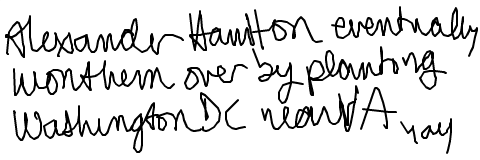 Alexander Hamilton eventually
won them over by planting
Washington DC near VA yay